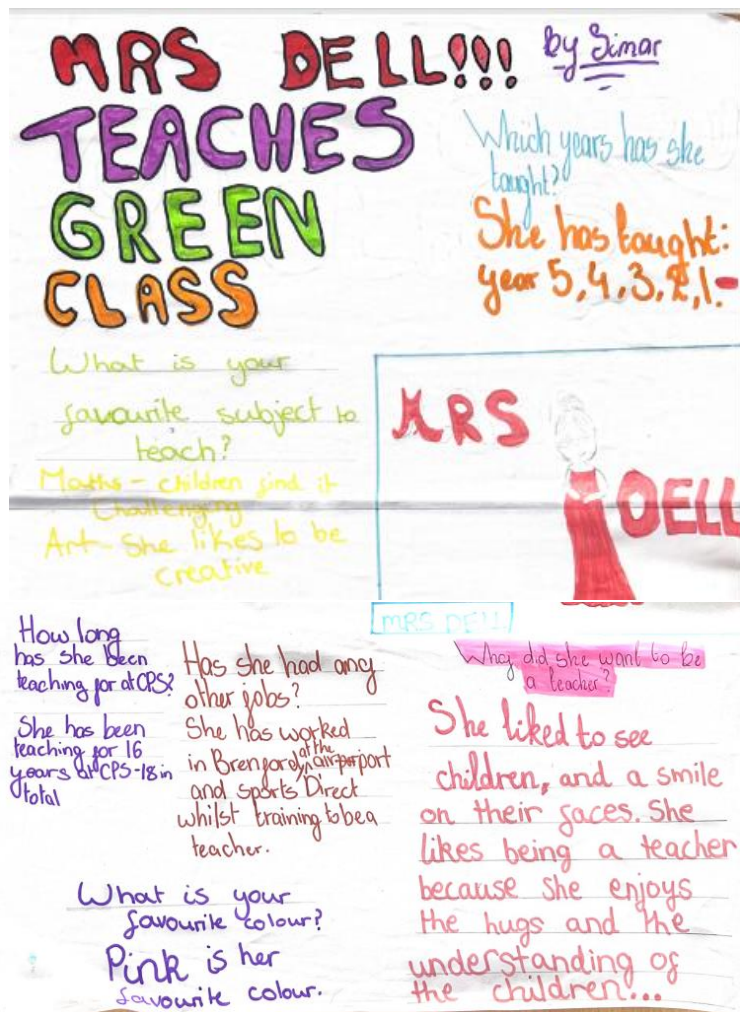 MRS DELL!!!
by Simar
TEACHES
GREEN
CLASS
Which years has she
taught?
She has taught:
year 5,4,3,2,1.
What is your
favourite subject to
teach?
Maths - children find it
Challenging
Art - She likes to be
creative
MRS
DELL
MRS DELL
How long
has she been
teaching for at CPS?
She has been
teaching for 16
years at CPS-18 in
total
Has she had any
other jobs?
She has worked
in Brenford, at the airport
and sports Direct
whilst training to be a
teacher.
What is your
favourite colour?
Pink is her
favourite colour.
Why did she want to be
a teacher?
She liked to see
children, and a smile
on their faces. She
likes being a teacher
because she enjoys
the hugs and the
understanding of
the children...